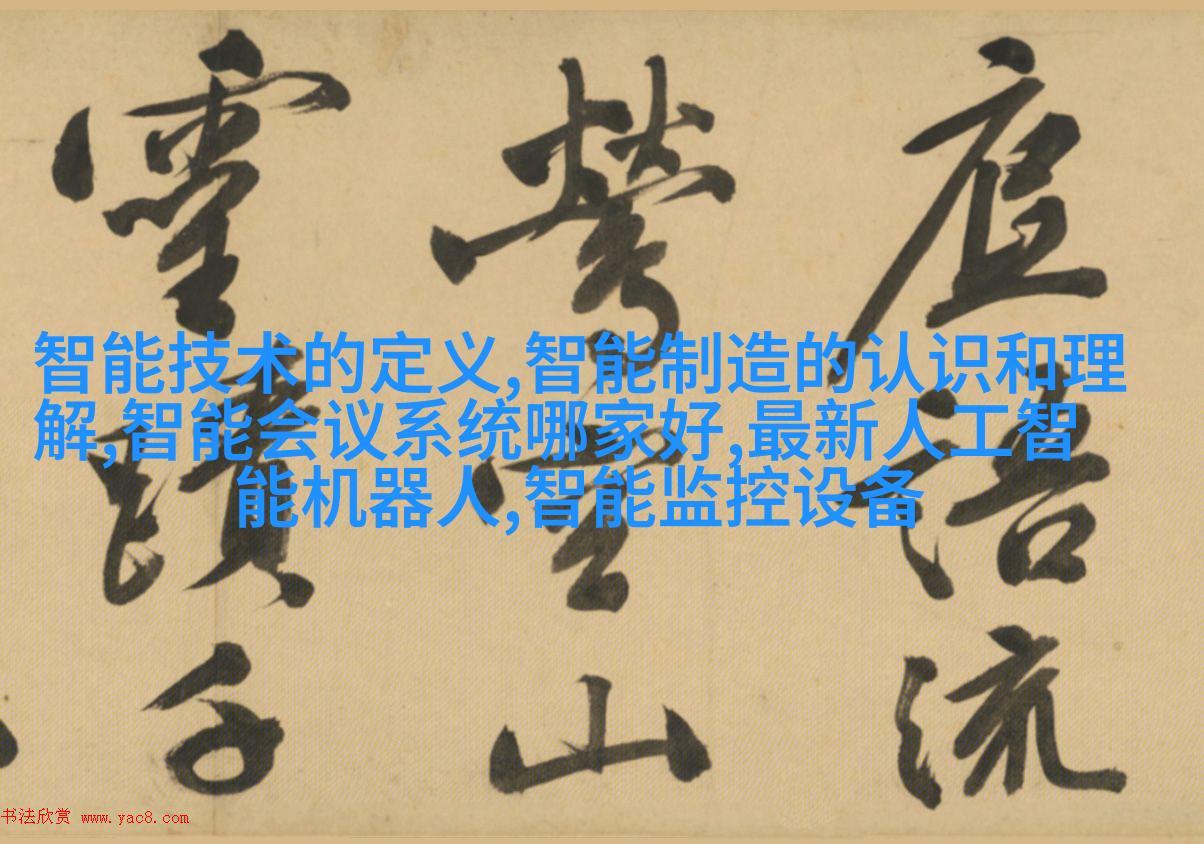 智能技术的定义,智能制造的认识和理
解,智能会议系统哪家好,最新人工智
能机器人,智能监控设备
流
山
千
书法欣赏 www.yac8.com